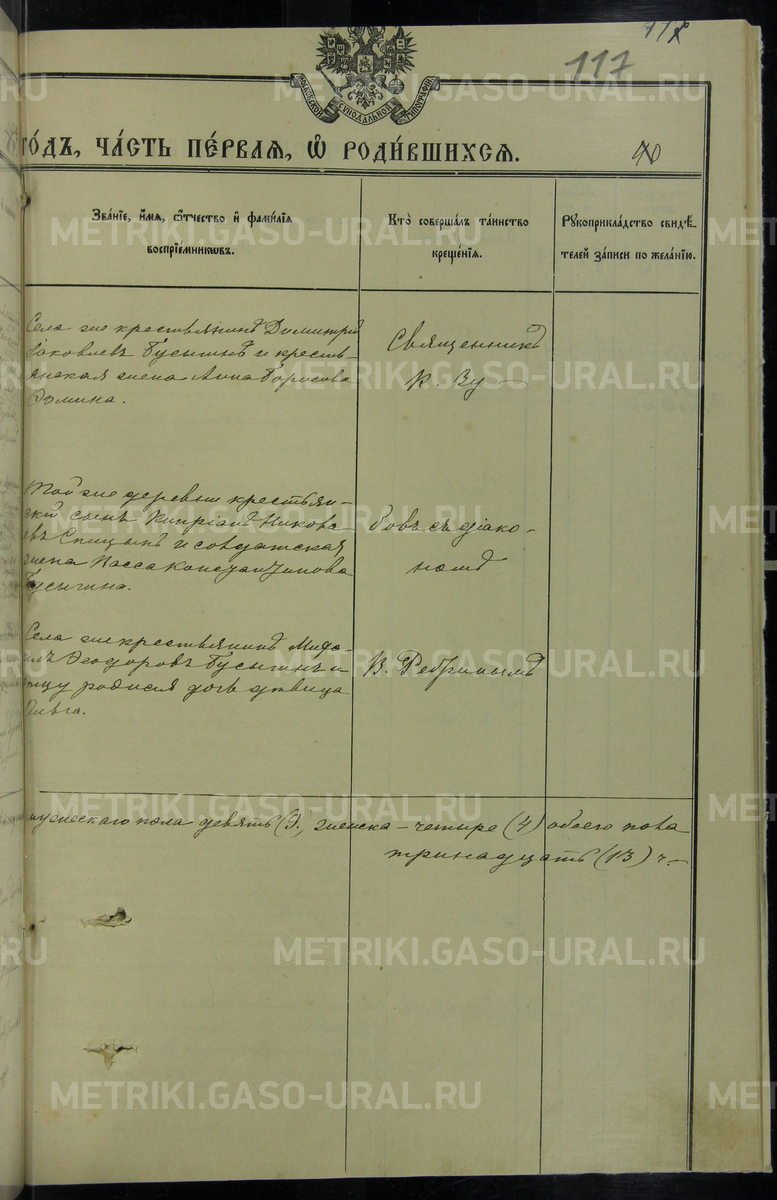 117
117
МОСКОВСКОЙ СѴНОДАЛЬНОЙ ТИПОГРАФІИ
го́дъ, ча́сть пе́рвая, ѡ҆ роди́вшихся.
40
Зва́ніе, и҆́мя, ѻ҆́тчество и҆ фами́лія
воспрїе́мникѡвъ.
Кто̀ соверша́лъ та́инство
креще́нія.
Рꙋкоприкла́дство свидѣ́-
телей за́писи по жела́нію.
Села же крестьянинъ Димитрій
Іаковлевъ Бусыгинъ и крестья-
нская жена Анна Борисова
Ѳомина.
Священникъ
К. Зу—
Той же деревни крестьян-
скій сынъ Кипріанъ Никола-
евъ Спицынъ и солдатская
жена Васса Константинова
Бусыгина.
бовъ съ діако-
номъ
Села же крестьянинъ Миха-
илъ Ѳеодоровъ Бусыгинъ и
отцу родная дочь дѣвица
Ольга.
В. Ребринымъ
мужескаго пола девять (9), женска – четыре (4) обоего пола
тринадцать (13) ч.—
METRIKI.GASO-URAL.RU